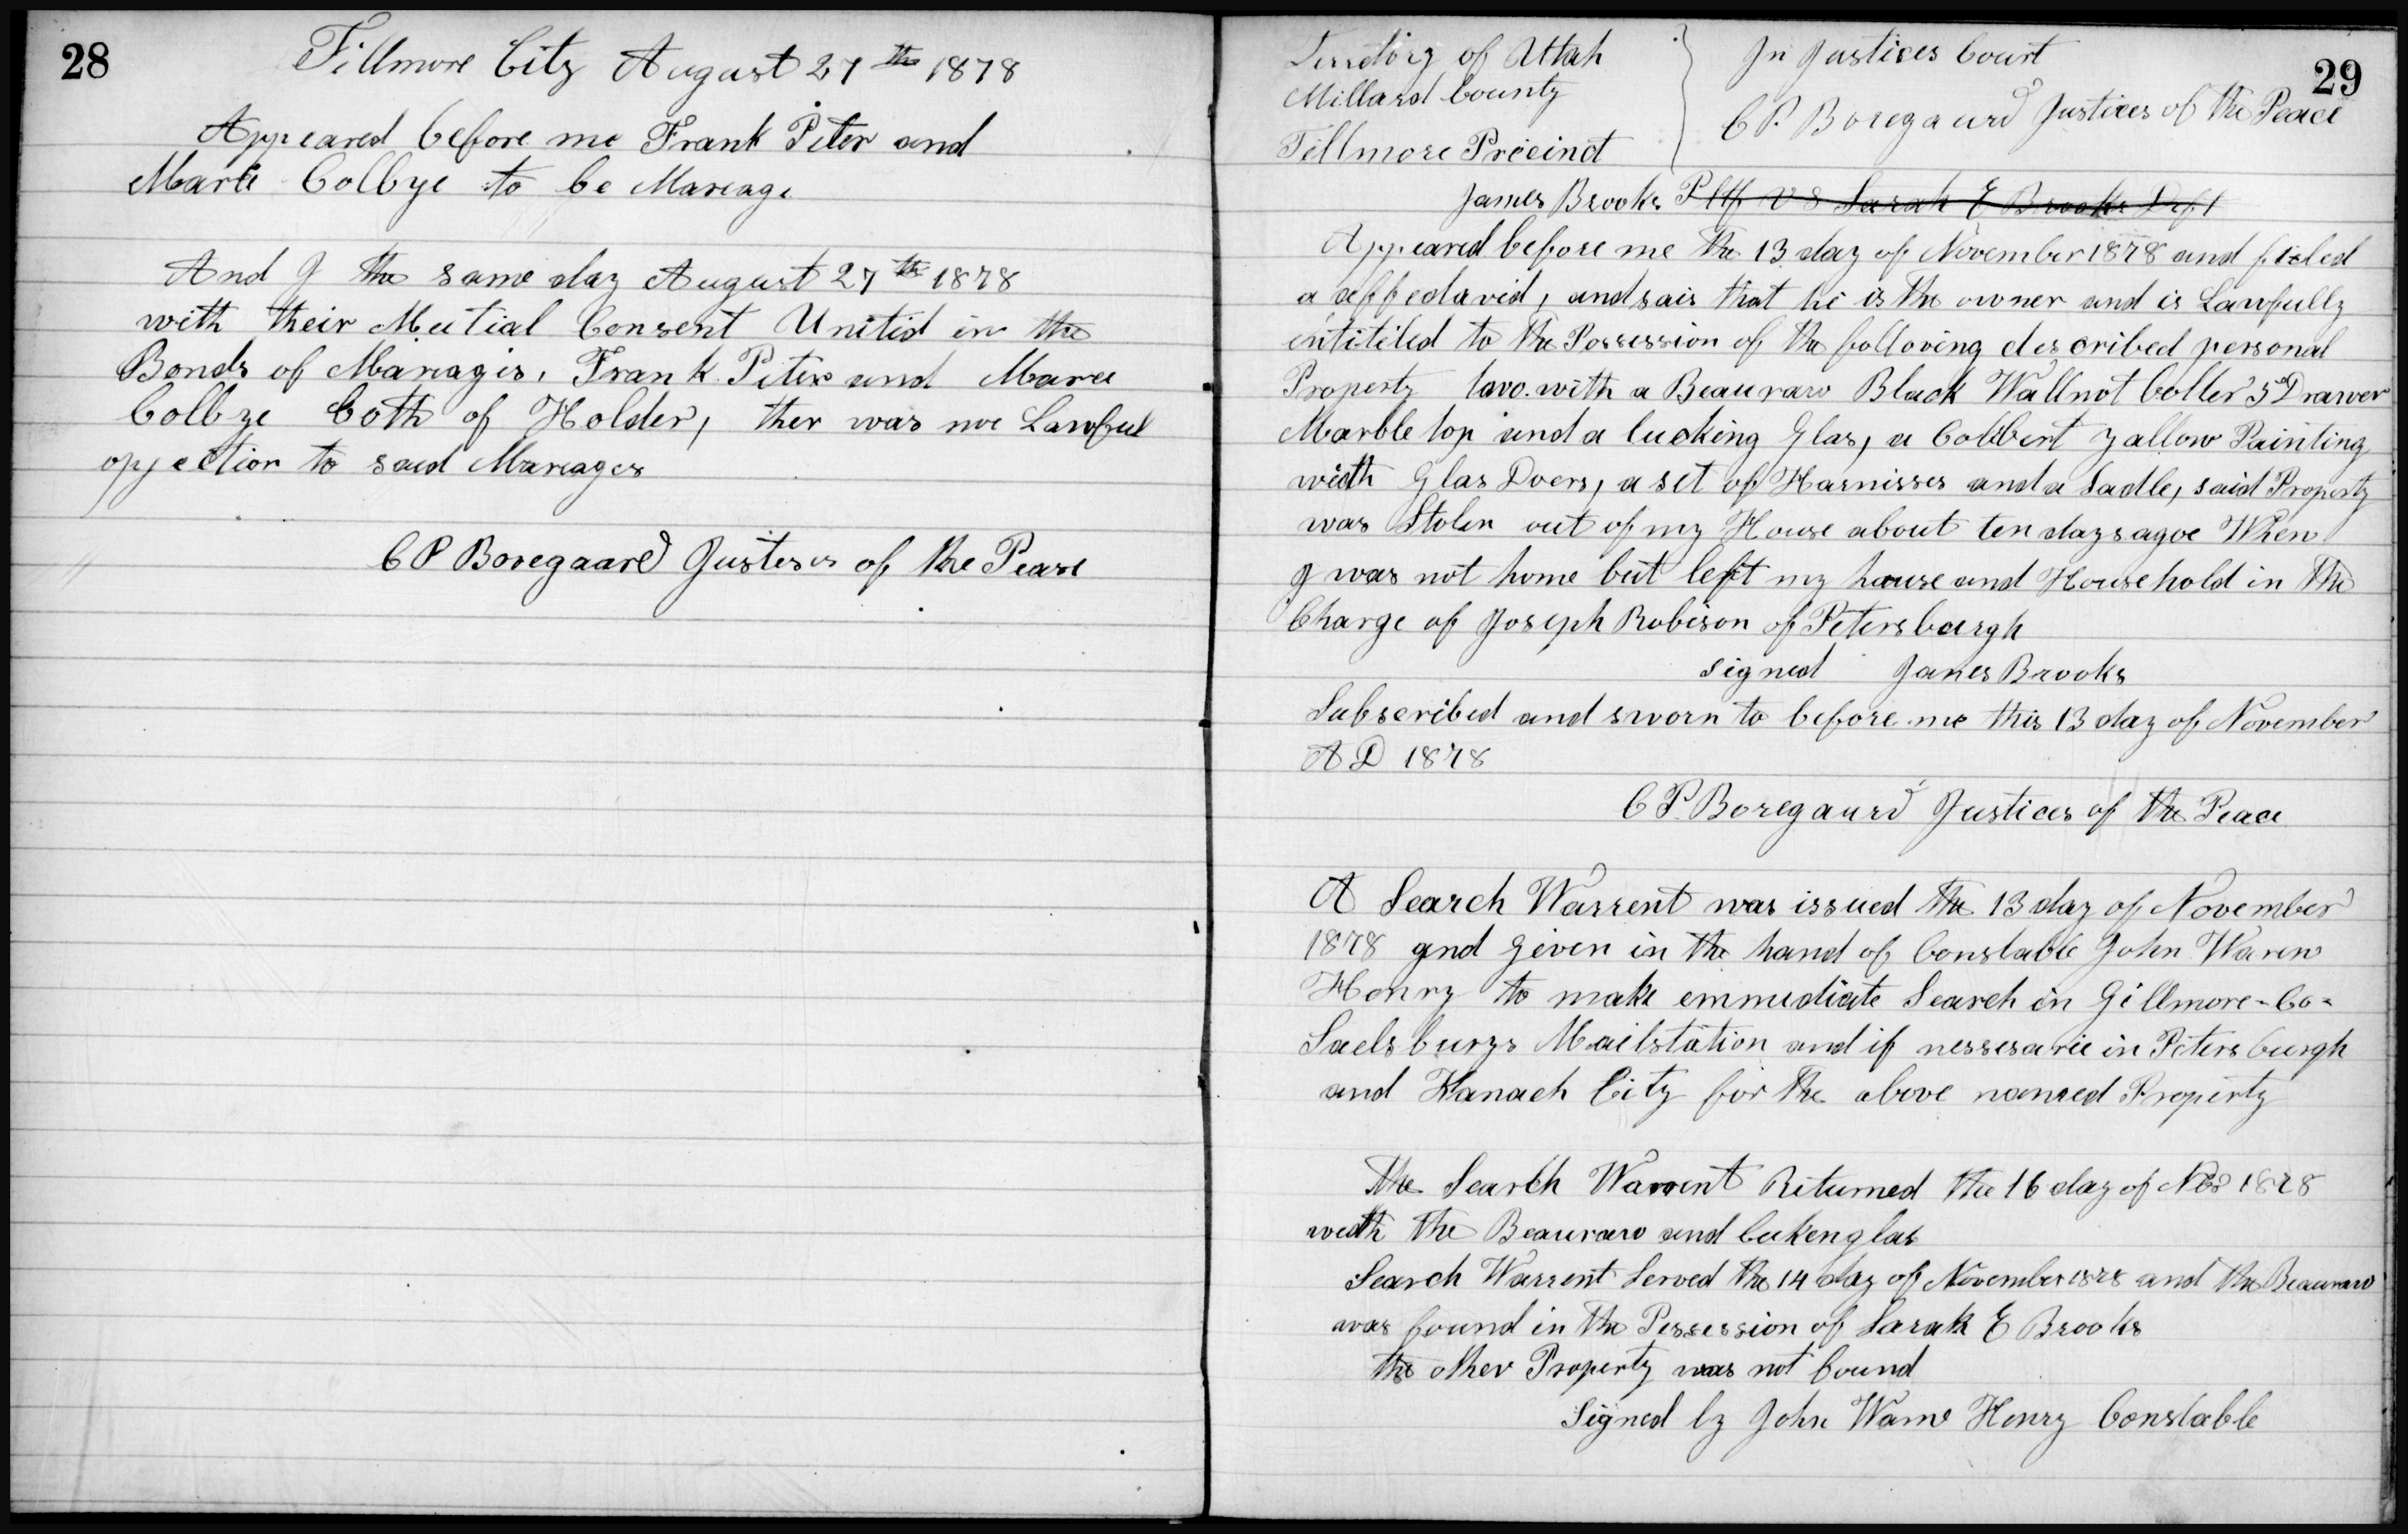 28
Fillmore City August 27th 1878
Appeared before me Frank Peter and
Marie Colbye to be Mareage
And I the same day August 27th 1878
with their Mutial Consent Unitid in the
Bonds of Mareages, Frank Peter and Mare
Colbye both of Holden, ther was no Lawful
opjection to said Mareages
C P Boregaard Justeses of the Pease
29
Territory of Uttah
Millard County
Fillmore Precinct
In Justices Court
C P. Boregaard Justices of the Peace
James Brooks Pltf vs Sarah E Brooks Deft
Appeared before me the 13 day of November 1878 and fieled
a affedavid, and sais that he is the owner and is Lawfully
entiteled to the Possession of the folloving described personal
Property with a Beauraw Black Wallnot Coller 5 Drawer
Marble top and a lucking Glas, a Cobbert yallow Painting
width Glas Doers, a set of Harnisses and a Sadle, said Property
was Stolen out of my House about ten days agoe When
I was not home but left my house and Household in the
Charge of Joseph Robison of Petersburgh
signed James Brooks
Subscribed and sworn to before me this 13 day of November
A D 1878
C P. Boregaard Justices of the Peace
A Search Warrent was issued the 13 day of November
1878 and given in the hand of Constable John Waren
Henry to make emmediate Search in Gillmore - Co -
Saelsburys Mailstation and if nessesarie in Petersburgh
and Kanach City for the above named Property
The Search Warrent Returned the 16 day of Nov 1878
width the Beauraw and lukenglas
Search Warrent Served the 14 day of November 1878 and the Beauraw
was found in the Possession of Sarah E Brooks
the other Property was not found
Signed by John Warne Henry Constable